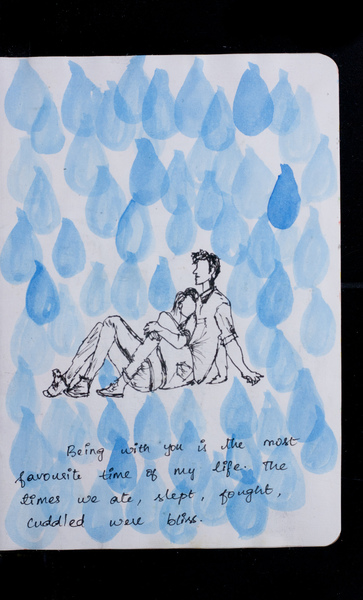 Being with you is the most
favourite time of my life. The
times we ate, slept, fought,
cuddled were bliss.